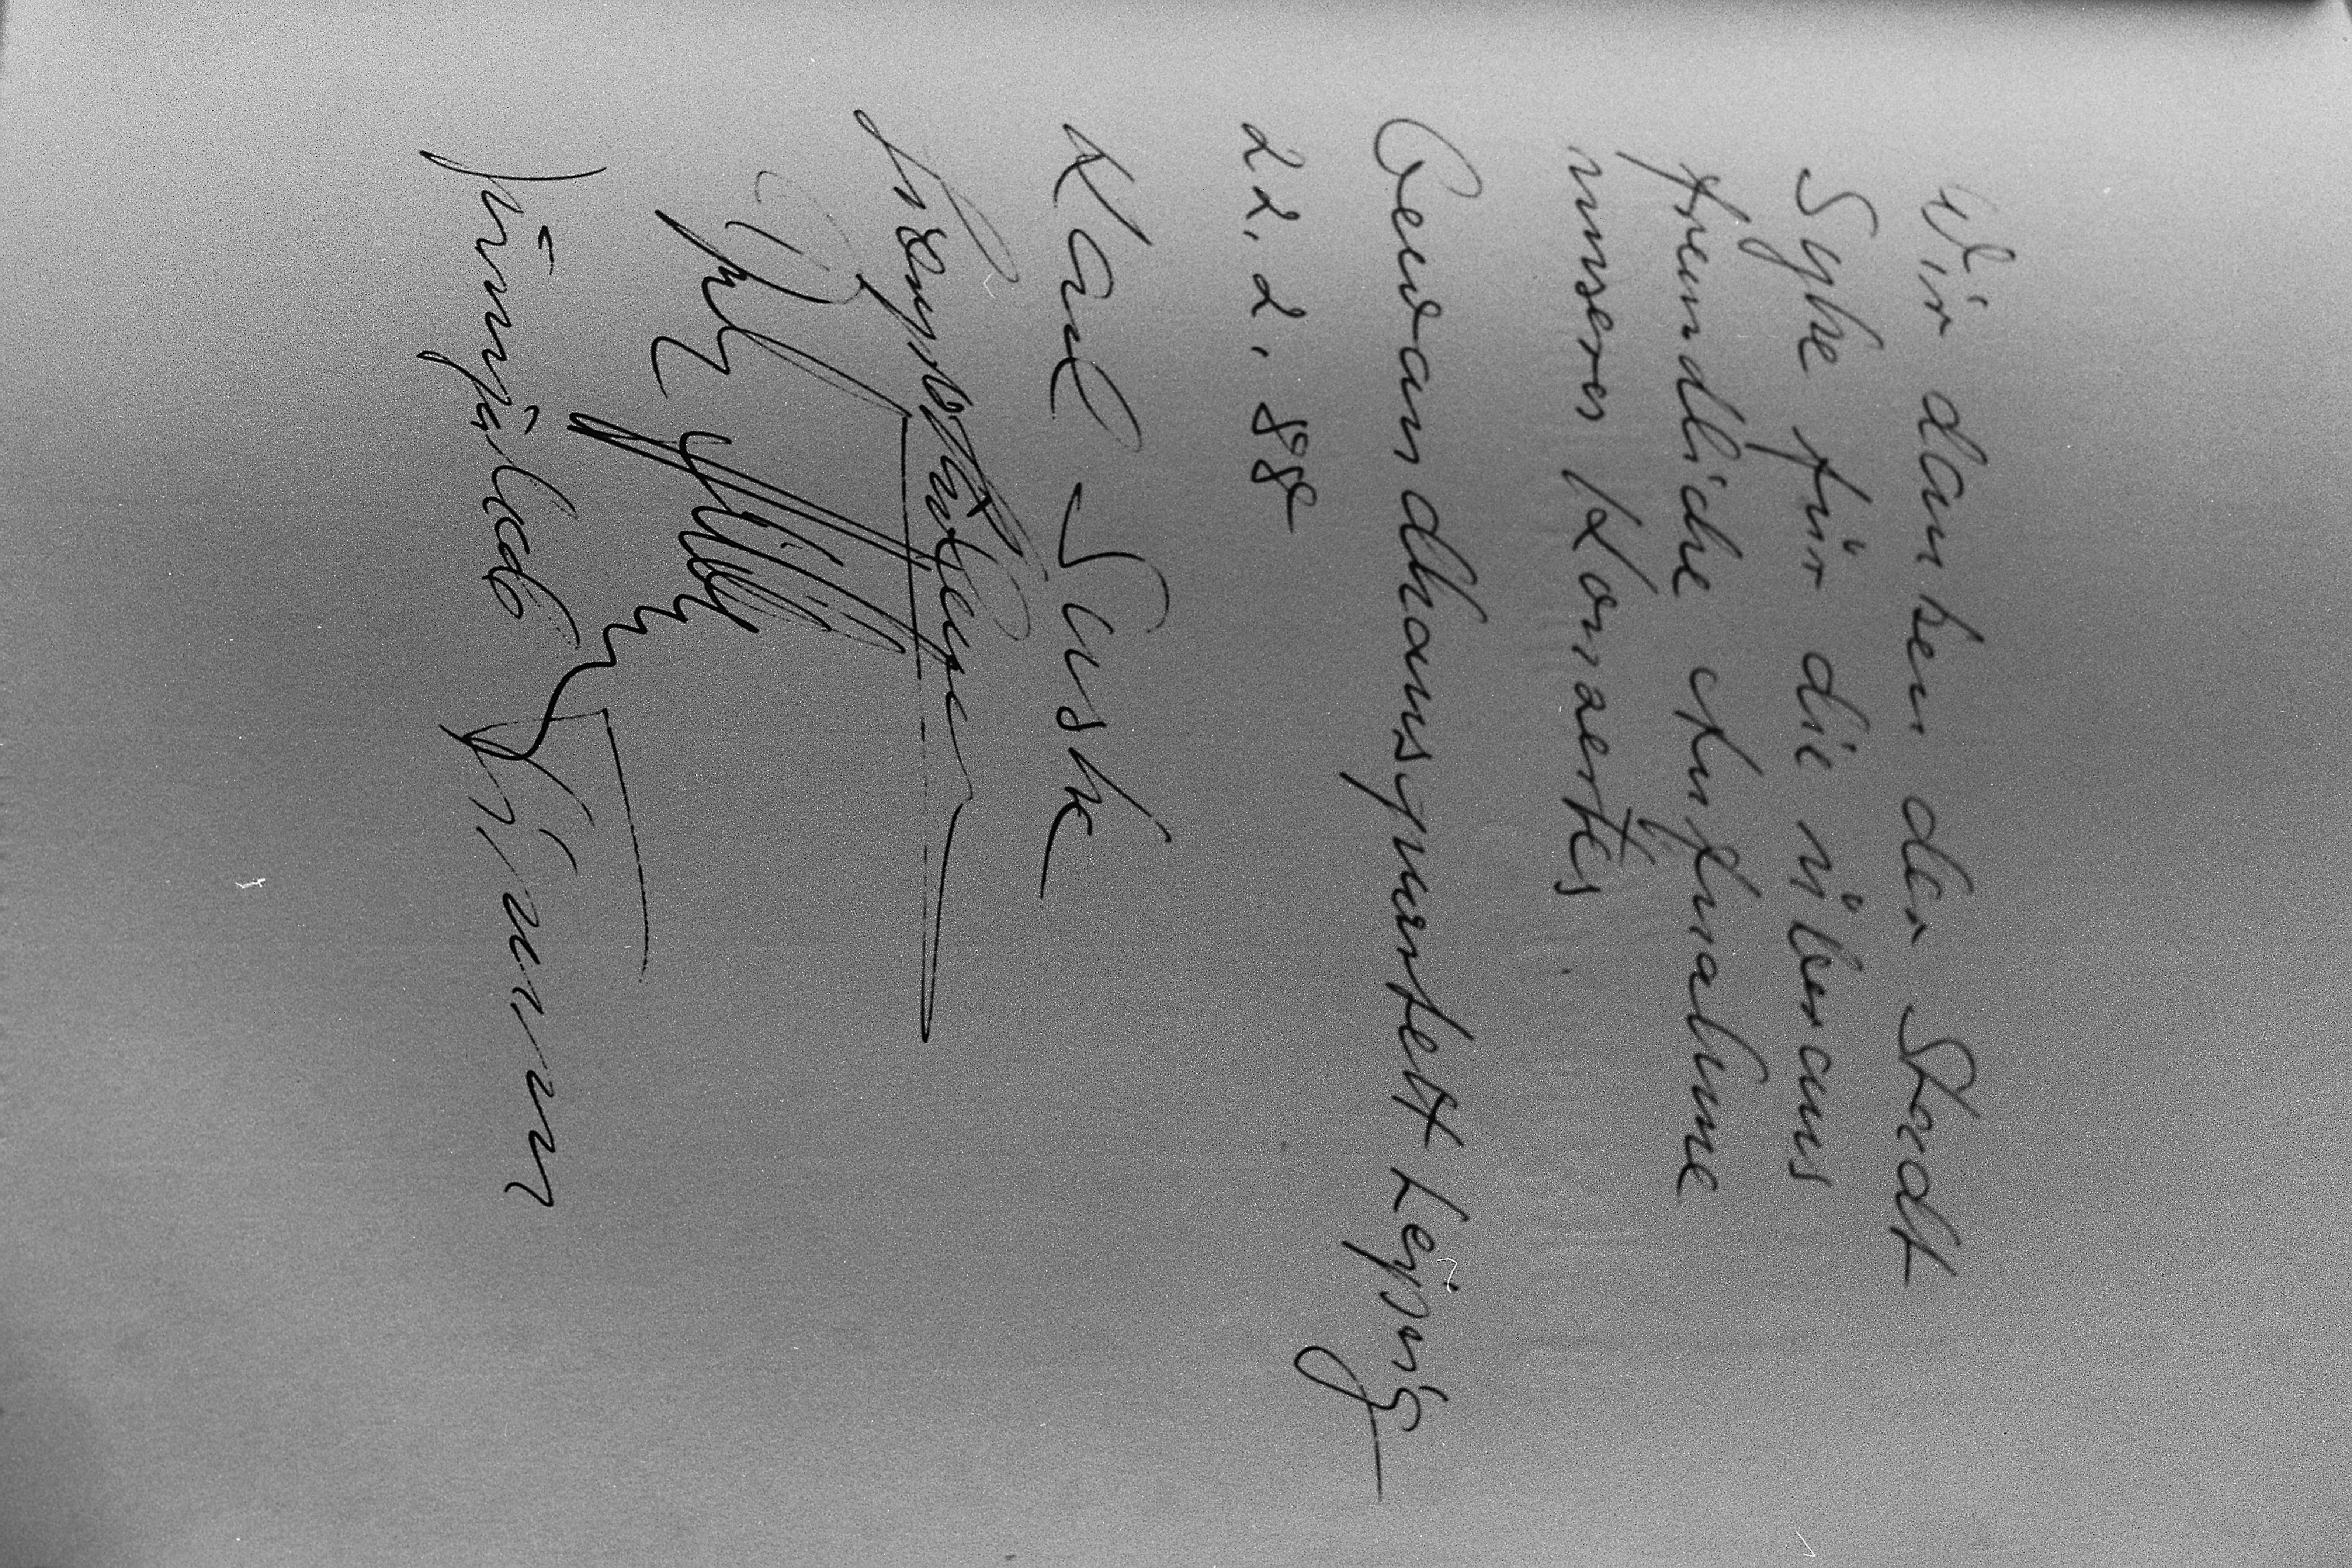 Wir danken der Stadt
Syke für die überaus
freundliche Aufnahme
unseres Konzertes
Gewandhausquartett Leipzig
22.2.88
Karl Suske